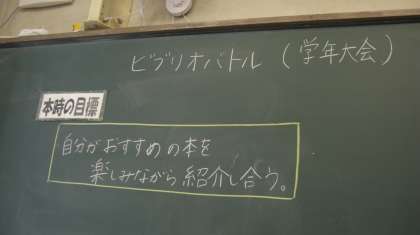 ビブリオバトル(学年大会)
本時の目標
自分がおすすめの本を
楽しみながら紹介し合う。